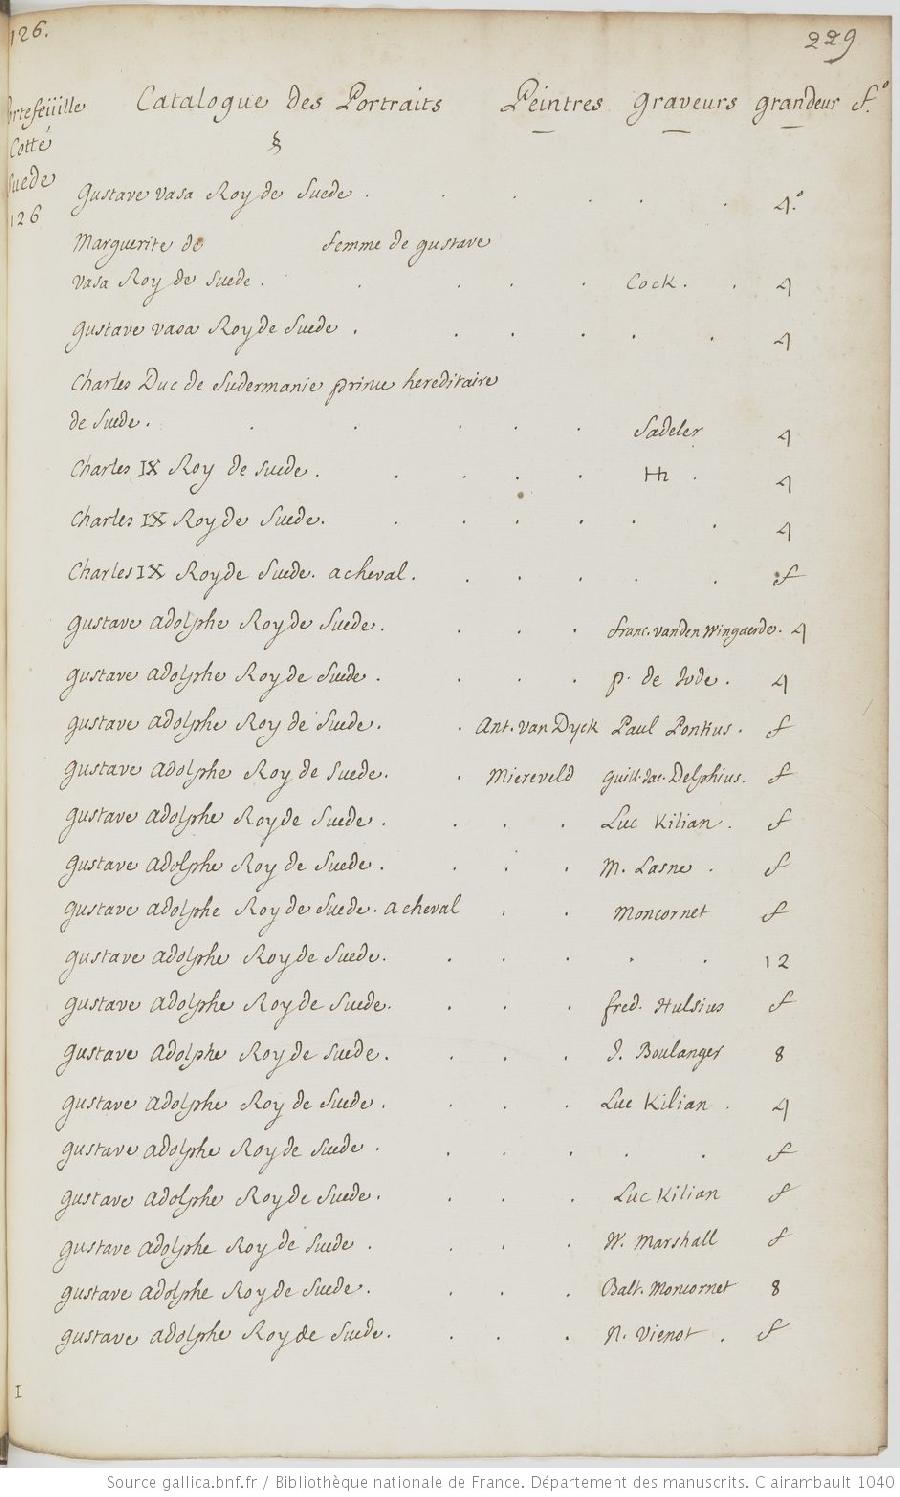 126.
229
Portefeüille
Cotté
Suede
126
Catalogue des Portraits Peintres graveurs grandeur f.º
§
Gustave vasa Roy de Suede . . . . . . 4.º
Marguerite de femme de gustave
vasa Roy de Suede . . . . . Cock . . 4
gustave vasa Roy de Suede . . . . . . 4
Charles Duc de Sudermanie prince hereditaire
de Suede . . . . . . Sadeler 4
Charles IX Roy de Suede . . . . . HH . 4
Charles IX Roy de Suede . . . . . . . 4
Charles IX Roy de Suede . a cheval . . . . . . f
gustave adolphe Roy de Suede . . . . franc. vanden Wingaerde . 4
gustave adolphe Roy de Suede . . . . p. de Jode . 4
gustave adolphe Roy de Suede . . Ant. van Dyck Paul Pontius . f
gustave adolphe Roy de Suede . . Miereveld guill. Jac. Delphius . f
gustave adolphe Roy de Suede . . . . Luc Kilian . f
gustave adolphe Roy de Suede . . . . M. Lasne . f
gustave adolphe Roy de Suede . a cheval . . Moncornet f
gustave adolphe Roy de Suede . . . . . . 12
gustave adolphe Roy de Suede . . . . fred. Hulsius f
gustave adolphe Roy de Suede . . . . J. Boulanger 8
gustave adolphe Roy de Suede . . . . Luc Kilian . 4
gustave adolphe Roy de Suede . . . . . . f
gustave adolphe Roy de Suede . . . . Luc Kilian f
gustave adolphe Roy de Suede . . . . W. Marshall f
gustave adolphe Roy de Suede . . . . Balt. Moncornet 8
gustave adolphe Roy de Suede . . . . N. Vienot . f
I
Source gallica.bnf.fr / Bibliothèque nationale de France. Département des manuscrits. Clairambault 1040